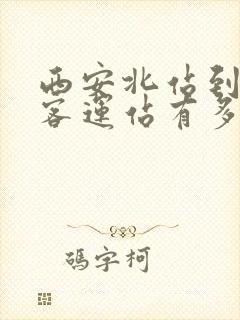 西安北佔到
客運佔有多
碼字柯